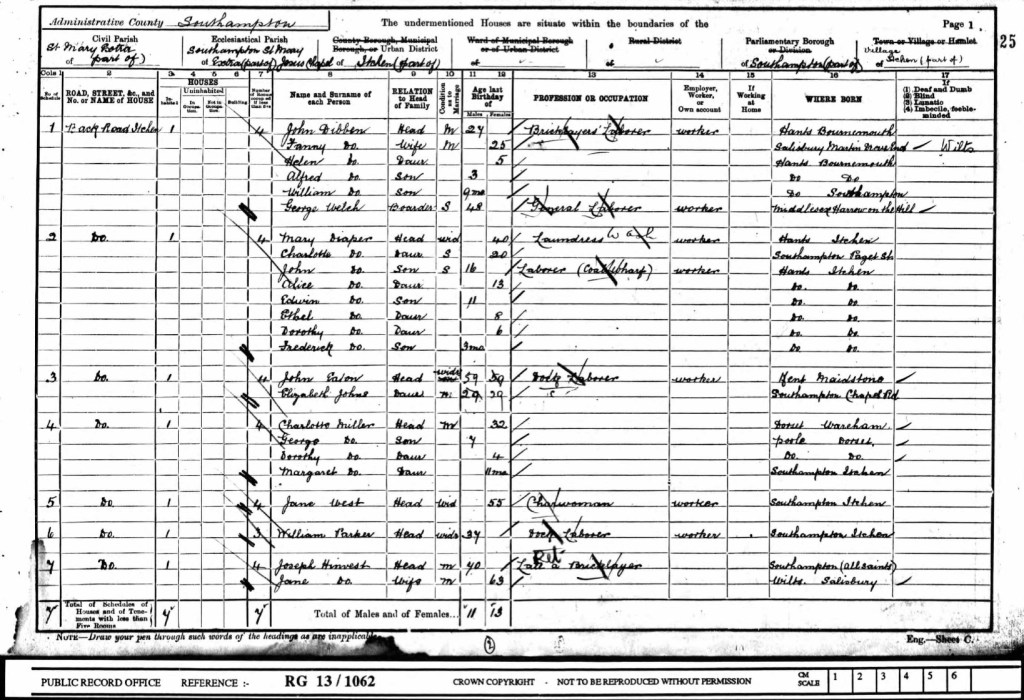 Administrative County Southampton The undermentioned Houses are situate within the boundaries of the Page 1
25
Civil Parish Ecclesiastical Parish County Borough, Municipal Borough, or Urban District Ward of Municipal Borough or of Urban District Rural District Parliamentary Borough or Division Town or Village or Hamlet
St Mary Extra (part of) Southampton St Mary Extra (part of) Jesus Chapel of Itchen (part of) of Southampton (part of) village Itchen (part of)
Cols 1 2 3 4 5 6 7 8 9 10 11 12 13 14 15 16 17
No. of Schedule ROAD, STREET, &c., and No. or NAME of HOUSE HOUSES Inhabited Uninhabited In Occupation Not in Occupation Building Number of Rooms occupied if less than five Name and Surname of each Person RELATION to Head of Family Condition as to Marriage Age last Birthday of Males Females PROFESSION OR OCCUPATION Employer, Worker, or Own account If Working at Home WHERE BORN If (1) Deaf and Dumb (2) Blind (3) Lunatic (4) Imbecile, feeble-minded
1 Back Road Itchen 1 4 John Dibben Head M 27 Bricklayers' Laborer worker Hants Bournemouth
Fanny Do. Wife M 25 Salisbury Martin Wilts
Helen Do. Daur 5 Hants Bournemouth
Alfred Do. Son 3 Do Do
William Do. Son 9mo Do Southampton
George Welch Boarder S 48 General Laborer worker Middlesex Harrow on the Hill
2 Do. 1 4 Mary Diaper Head wid 40 Laundress Wash worker Hants Itchen
Charlotte Do. Daur S 20 Southampton Paget St
John Do. Son S 16 Laborer (Coal Wharf) worker Hants Itchen
Alice Do. Daur 13 Do. Do.
Edwin Do. Son 11 Do. Do.
Ethel Do. Daur 8 Do. Do.
Dorothy Do. Daur 6 Do. Do.
Frederick Do. Son 3mo Do. Do.
3 Do. 1 4 John Eaton Head widr 59 59 Dock Laborer worker Kent Maidstone
Elizabeth Johns Daur m 29 29 Southampton Chapel Rd
4 Do. 1 4 Charlotte Miller Head M 32 Dorset Wareham.
George Do. Son 7 Poole Dorset,
Dorothy Do. Daur 4 Do. Do.
Margaret Do. Daur 11mo Southampton Itchen
5 Do. 1 4 Jane West Head wid 55 Charwoman worker Southampton Itchen
6 Do. 1 3 William Parker Head widr 37 Dock Laborer worker Southampton Itchen
7 Do. 1 4 Joseph Hinvest Head m 70 Ret Late a Bricklayer Southampton (All Saints)
Jane Do. Wife M 63 Wilts. Salisbury
7 Total of Schedules of Houses and of Tenements with less than Five Rooms 7 7 Total of Males and of Females... 11 13
NOTE—Draw your pen through such words of the headings as are inapplicable. Eng.—Sheet C.
PUBLIC RECORD OFFICE REFERENCE :- RG 13/1062 CROWN COPYRIGHT - NOT TO BE REPRODUCED WITHOUT PERMISSION CM SCALE 1 2 3 4 5 6